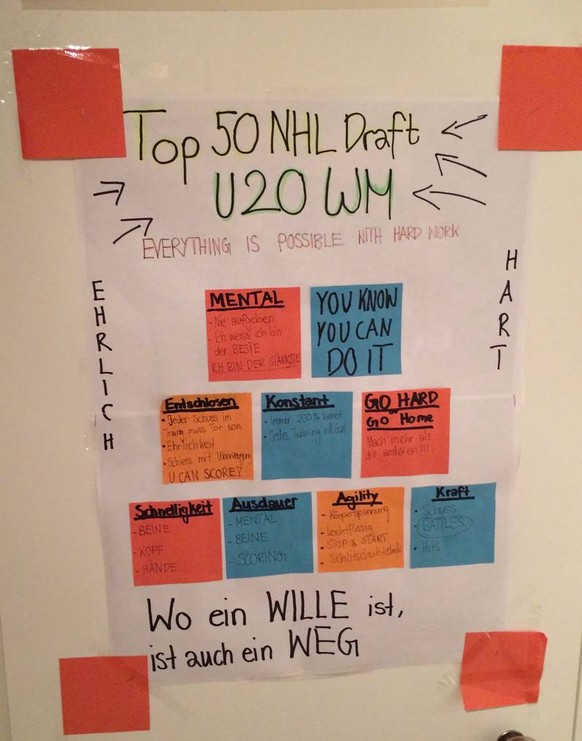 Top 50 NHL Draft
U20 WM
EVERYTHING IS POSSIBLE WITH HARD WORK
EHRLICH
HART
MENTAL
- Nie aufgeben
- Ich weiss ich bin
der BESTE
ICH BIN DER STÄRKSTE
YOU KNOW
YOU CAN
DO IT
Entschlosen
- Jeder Schuss im
Train muss Tor sein.
- Ehrlichkeit
- Schuss mit Überzeugung
U CAN SCORE?
Konstant
- Immer 200% bereit
- Jedes Training voll Gas
GO HARD
or
Go Home
Noch mehr als
die anderen!!!
Schnelligkeit
- BEINE
- KOPF
- HÄNDE
Ausdauer
- MENTAL
- BEINE
- SCORING
Agility
- Körperspannung
- Leichtfüssig
- STOP & START
- Schlitschuhtechnik
Kraft
- Schuss
BATTLES
- Hits
Wo ein WILLE ist,
ist auch ein WEG